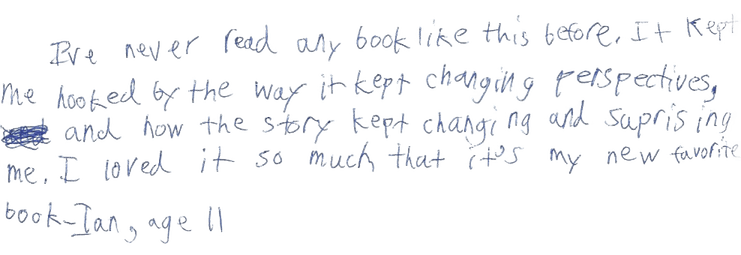 I've never read any book like this before. It kept
me hooked by the way it kept changing perspectives,
and how the story kept changing and suprising
me. I loved it so much that it's my new favorite
book-Ian, age 11